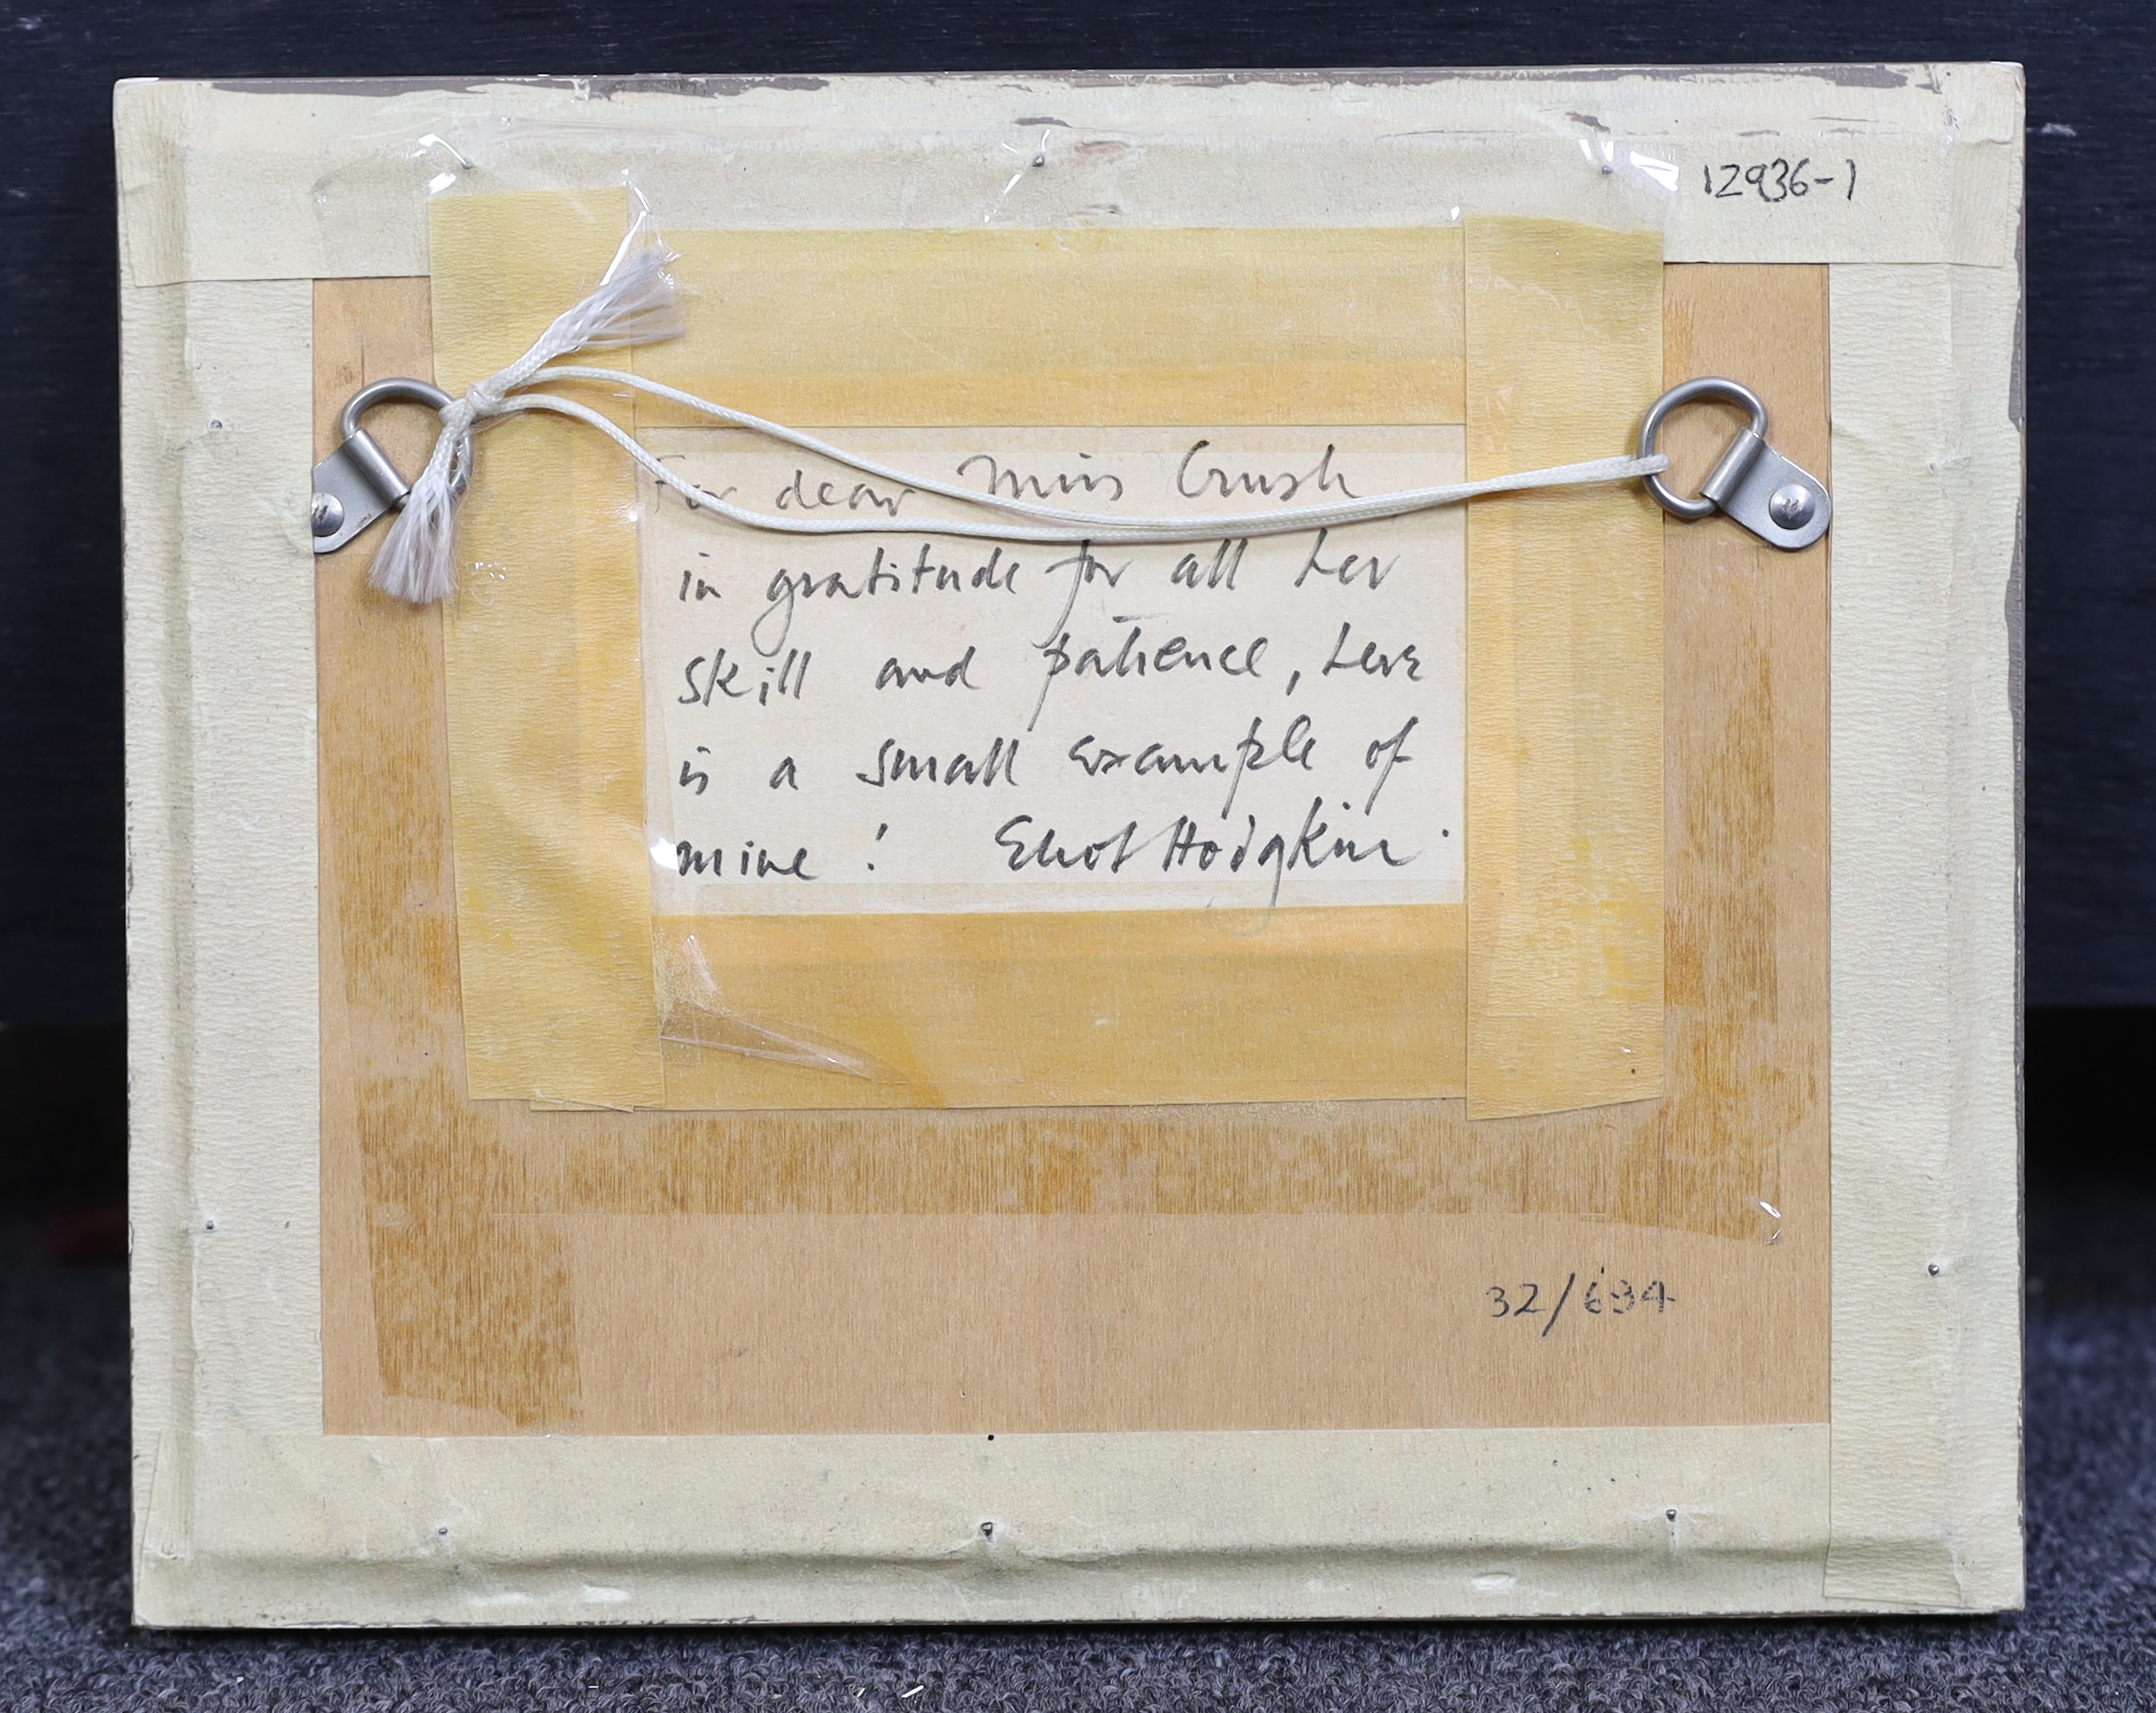 12936-1
For dear Miss Crush,
in gratitude for all her
skill and patience, here
is a small example of
mine! Eliot Hodgkin.
32/634